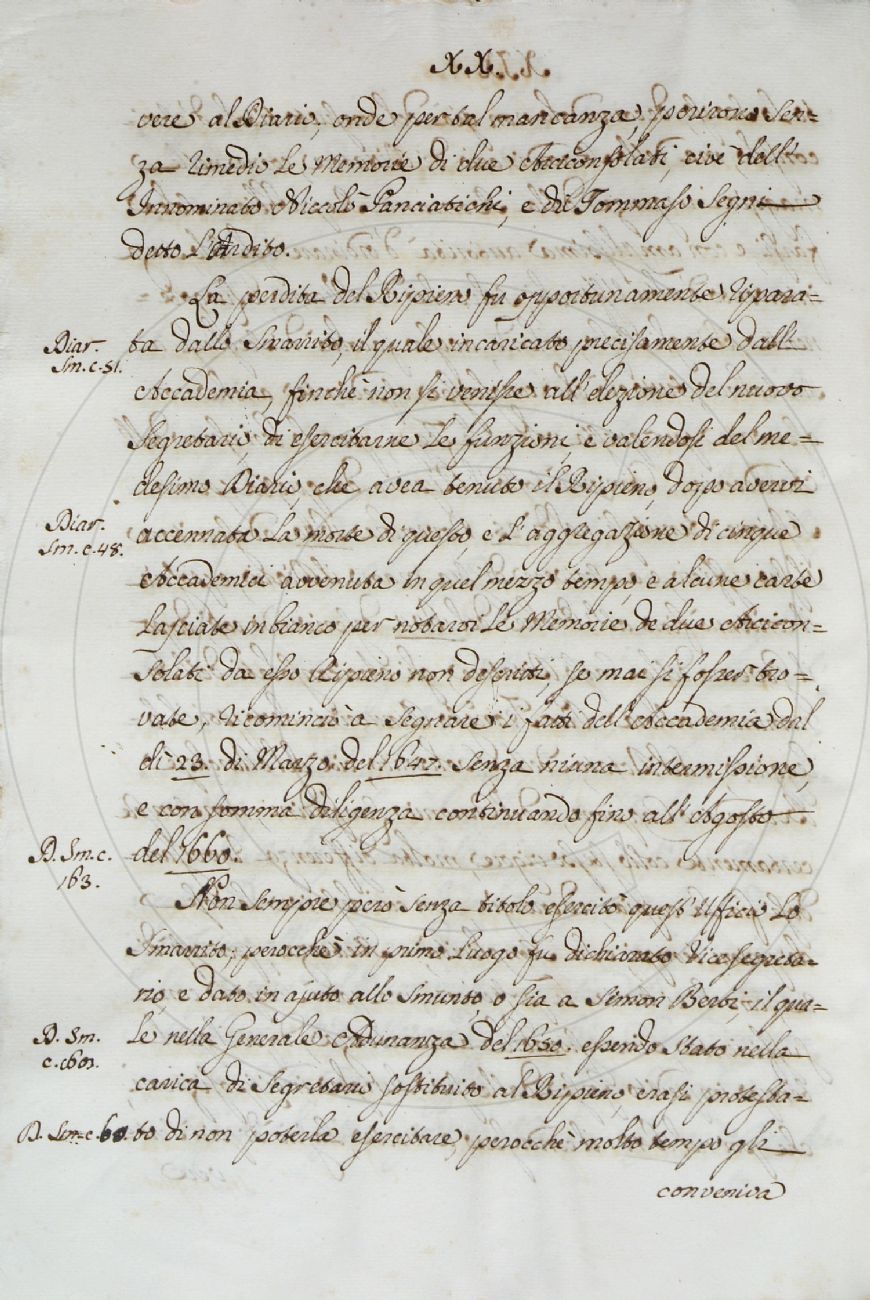 XX.
vere al Diario, onde per tal mancanza, perirono sen=
za rimedio le Memorie di due Arciconsolati, cioè dell'
Innominato Niccolò Panciatichi, e di Tommaso Segni
detto L'Ardito.
La perdita del Ripieno fu opportunamente ripara=
Diar. Sm. c. 51.
ta dallo Smarrito, il quale incaricato precisamente dall'
Accademia, finchè non si venisse all'elezione del nuovo
Segretario, di esercitarne le funzioni, e valendosi del me=
desimo Diario, che avea tenuto il Ripieno, dopo avervi
Diar. Sm. c. 48.
accennata la morte di questo, e l'aggregazione di cinque
Accademici avvenuta in quel mezzo tempo, e alcune carte
lasciate in bianco per notarvi le Memorie de due Arcicon=
solati da esso Ripieno non descritti, se mai si fosser tro=
vate, ricominciò a segnare i fatti dell'Accademia dal
dì 23. di Marzo del 1647. senza niuna intermissione,
e con somma diligenza continuando fino all'Agosto
D. Sm. c. 163.
del 1660.
Non sempre però senza titolo esercitò quest'Uffizio lo
Smarrito; perocchè in primo luogo fu dichiarato Vicesegreta=
rio, e dato in ajuto allo Smunto, o sia a Simon Berti, il qua=
D. Sm. c. 160.
le nella Generale Adunanza del 1650. essendo stato nella
carica di Segretario sostituito al Ripieno, erasi protesta=
D. Sm. c. 60.
to di non poterla esercitare, perocchè molto tempo gli
conveniva